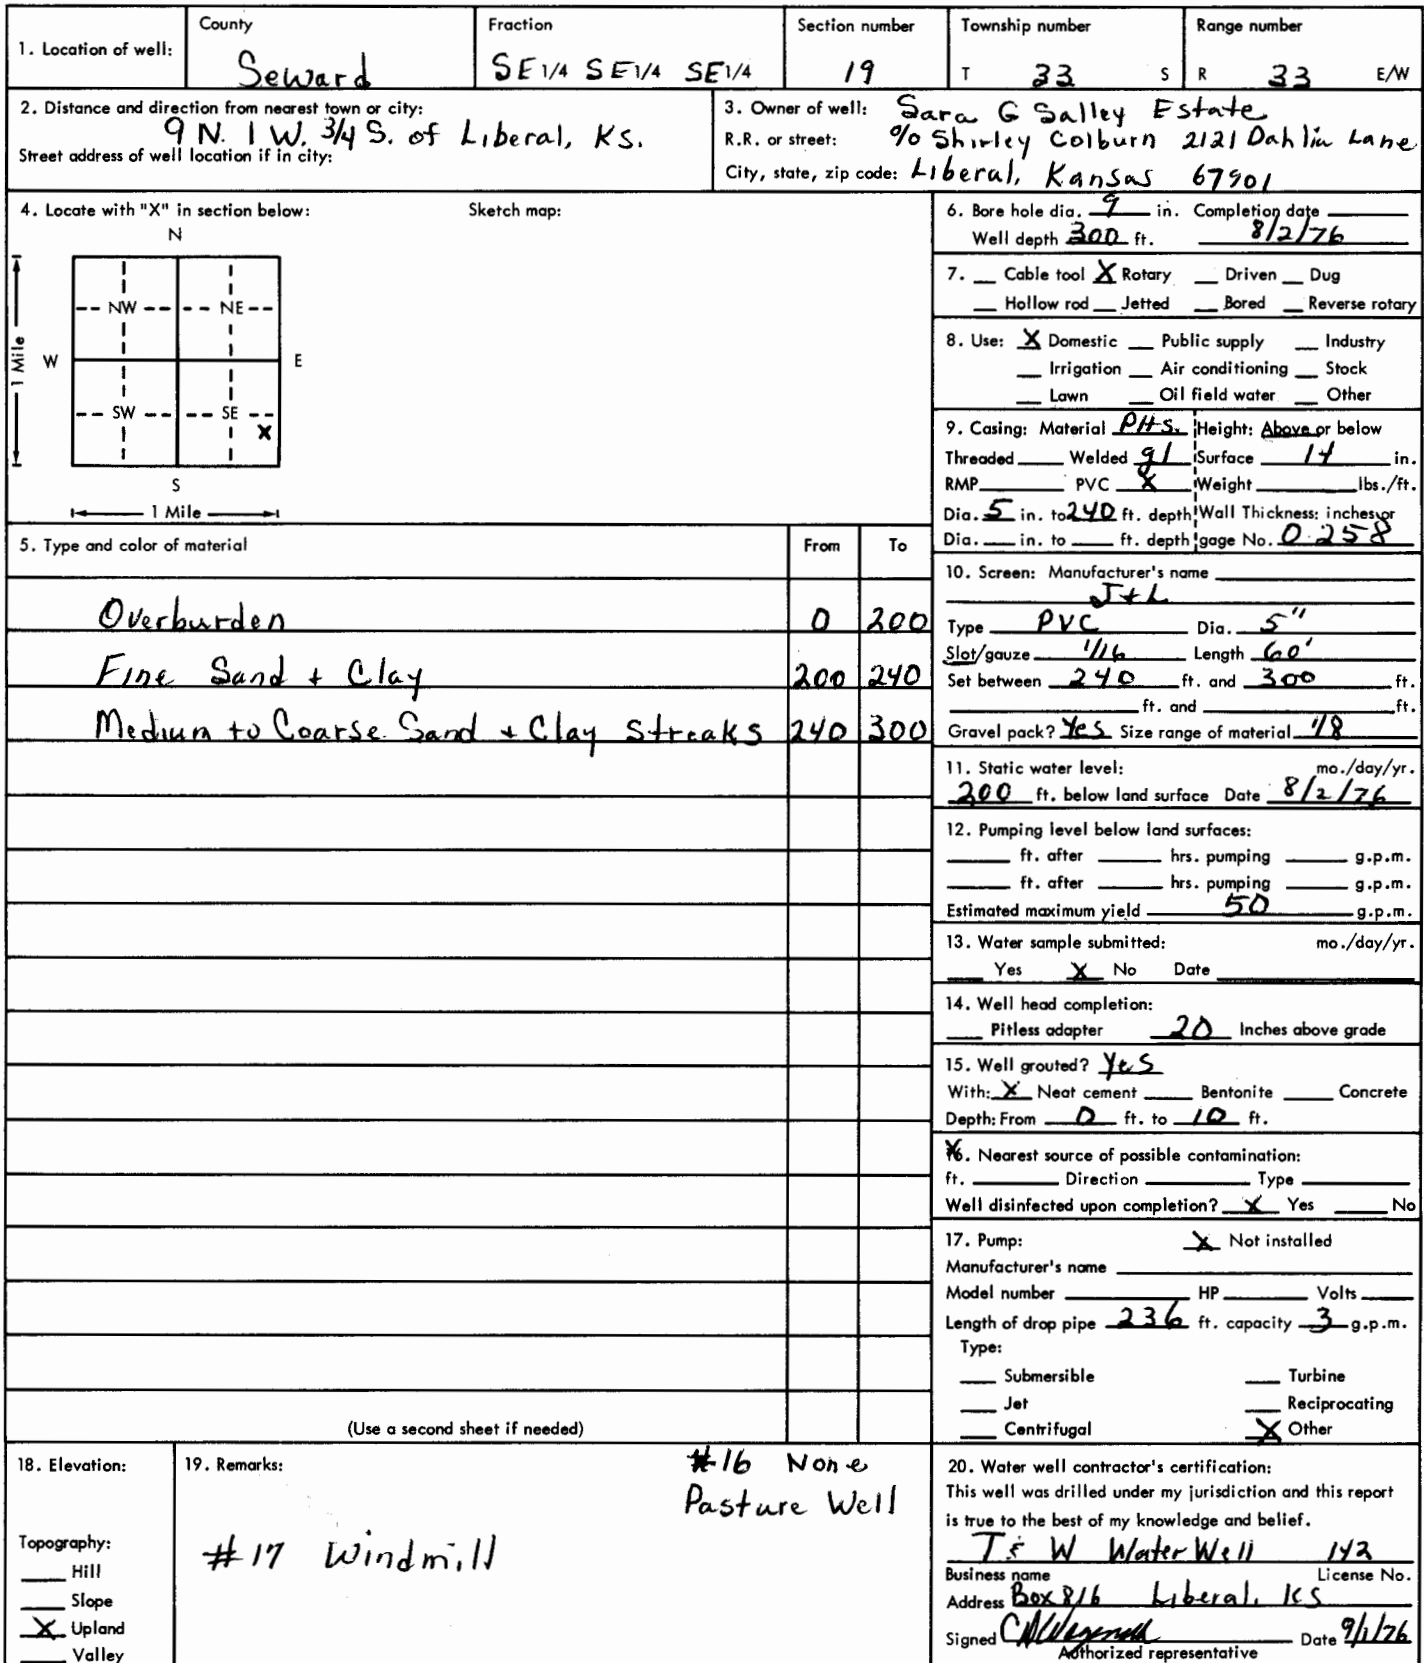 1. Location of well: County Seward Fraction SE 1/4 SE 1/4 SE 1/4 Section number 19 Township number T 33 S Range number R 33 E/W
2. Distance and direction from nearest town or city:
9 N. 1 W. 3/4 S. of Liberal, KS.
Street address of well location if in city:
3. Owner of well: Sara G Salley Estate
R.R. or street: % Shirley Colburn 2121 Dahlia Lane
City, state, zip code: Liberal, Kansas 67901
4. Locate with "X" in section below: Sketch map:
N
NW NE
W E
1 Mile
SW SE
X
S
1 Mile
5. Type and color of material From To
Overburden 0 200
Fine Sand + Clay 200 240
Medium to Coarse Sand + Clay Streaks 240 300
(Use a second sheet if needed)
6. Bore hole dia. 9 in. Completion date
Well depth 300 ft. 8/2/76
7. Cable tool X Rotary Driven Dug
Hollow rod Jetted Bored Reverse rotary
8. Use: X Domestic Public supply Industry
Irrigation Air conditioning Stock
Lawn Oil field water Other
9. Casing: Material Height: Above or below
Threaded Welded gl Surface 14 in.
RMP PVC X Weight lbs./ft.
Dia. 5 in. to 240 ft. depth Wall Thickness: inches or
Dia. in. to ft. depth gage No. 0.258
10. Screen: Manufacturer's name
J+L
Type PVC Dia. 5"
Slot/gauze 1/16 Length 60'
Set between 240 ft. and 300 ft.
ft. and ft.
Gravel pack? Yes Size range of material 1/8
11. Static water level: mo./day/yr.
200 ft. below land surface Date 8/2/76
12. Pumping level below land surfaces:
ft. after hrs. pumping g.p.m.
ft. after hrs. pumping g.p.m.
Estimated maximum yield 50 g.p.m.
13. Water sample submitted: mo./day/yr.
Yes X No Date
14. Well head completion:
Pitless adapter 20 Inches above grade
15. Well grouted? Yes
With: X Neat cement Bentonite Concrete
Depth: From 0 ft. to 10 ft.
16. Nearest source of possible contamination:
ft. Direction Type
Well disinfected upon completion? X Yes No
17. Pump: X Not installed
Manufacturer's name
Model number HP Volts
Length of drop pipe 236 ft. capacity 3 g.p.m.
Type:
Submersible Turbine
Jet Reciprocating
Centrifugal X Other
18. Elevation:
Topography:
Hill
Slope
X Upland
Valley
19. Remarks: #16 None
Pasture Well
#17 Windmill
20. Water well contractor's certification:
This well was drilled under my jurisdiction and this report
is true to the best of my knowledge and belief.
T & W Water Well 142
Business name License No.
Address Box 816 Liberal, KS
Signed Date 9/1/76
Authorized representative